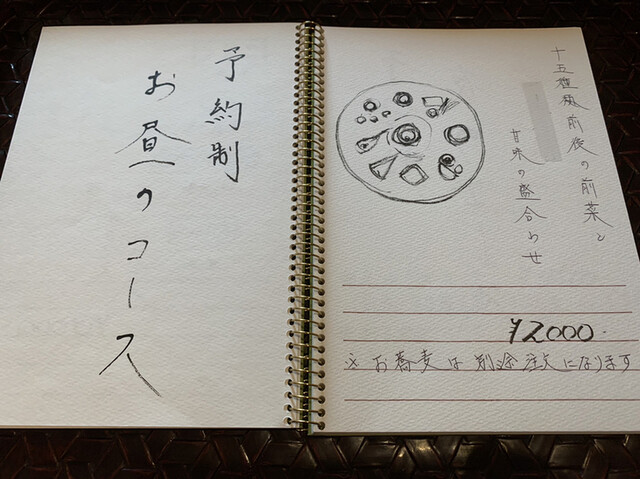 予約制
お昼のコース
十五種類前後の前菜と
甘味の盛合わせ
¥2000.
※お蕎麦は別途注文になります